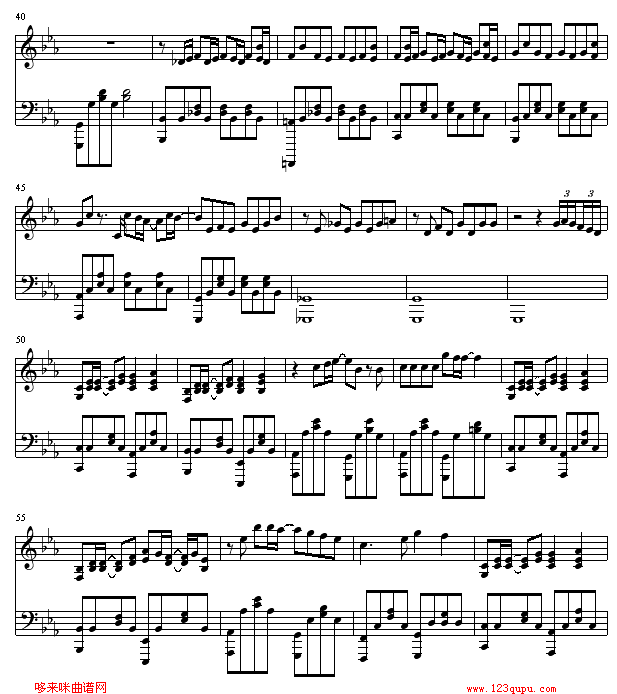 40
45
3 3
50
55
哆来咪曲谱网
www.123qupu.com